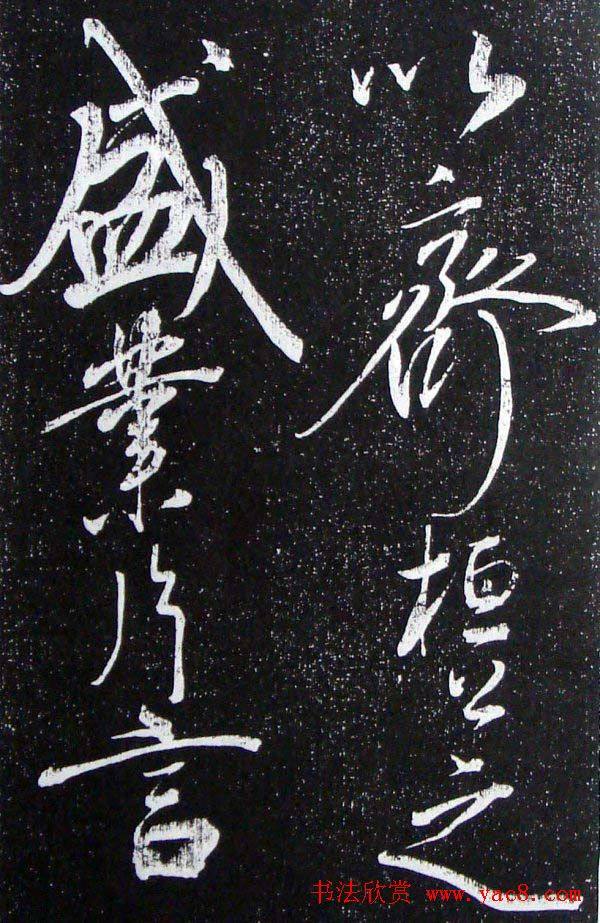 以齊桓公之
盛業片言
书法欣赏 www.yac8.com